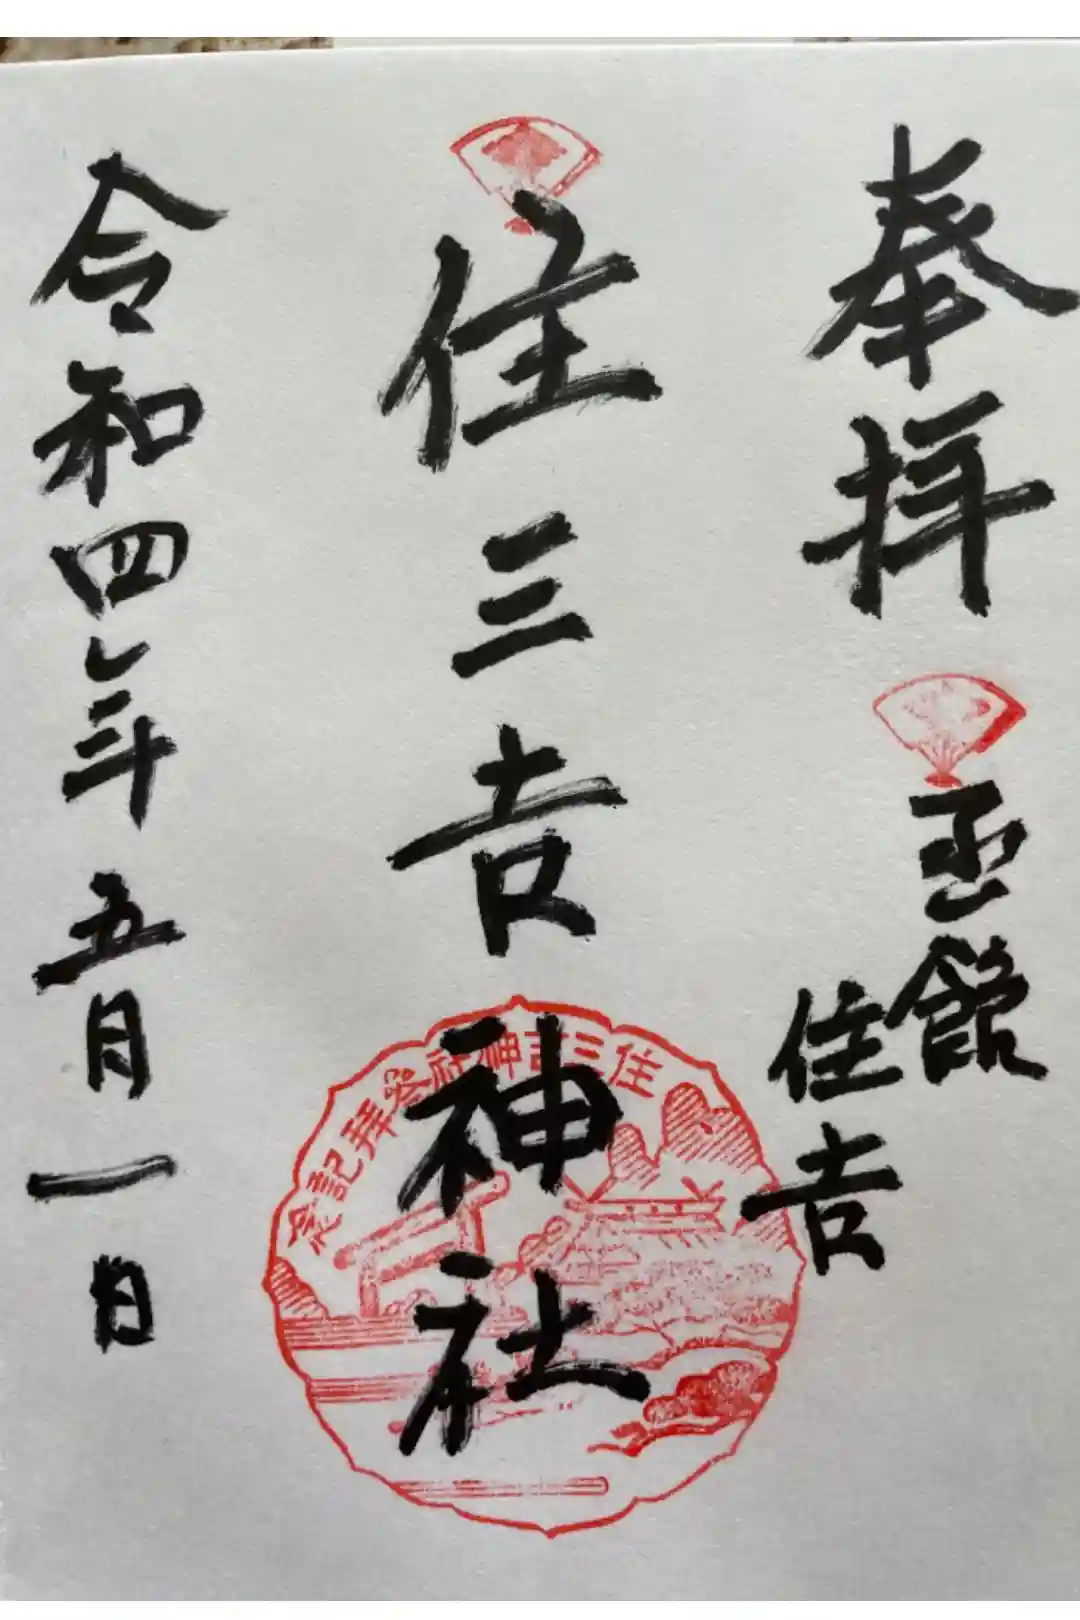 奉拝
函館
住吉
住三吉神社
住三吉神社参拝記念
令和四年五月一日